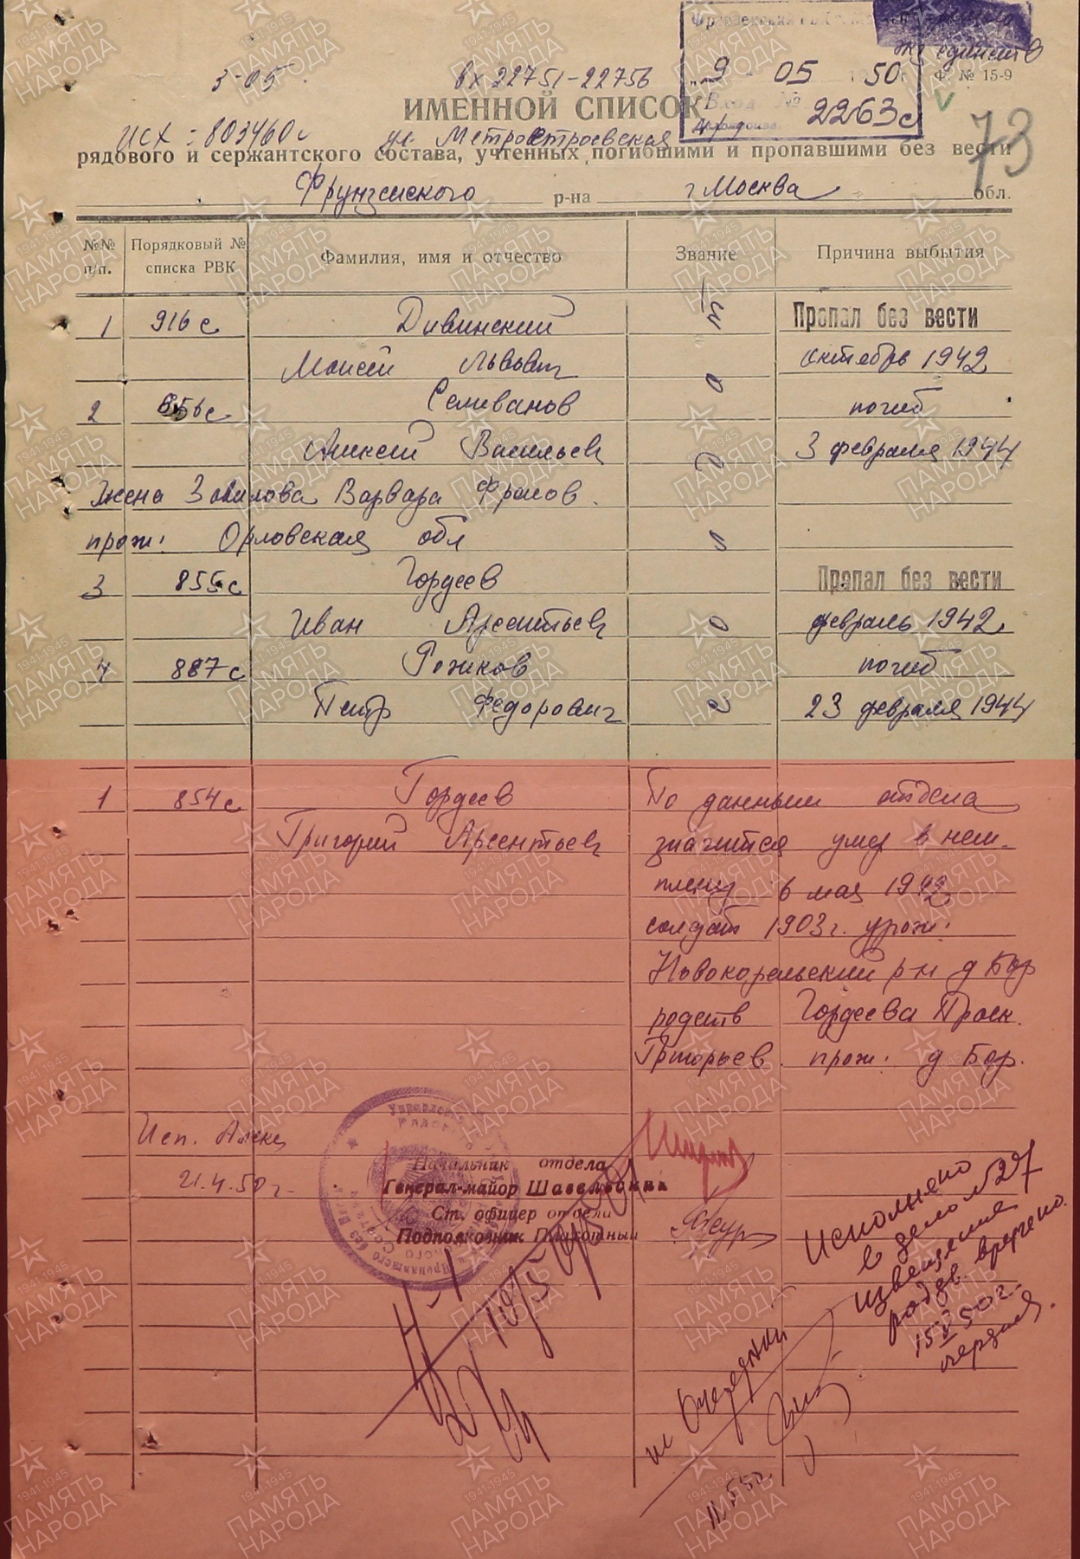 Фрунзенский
3-05
вх 22751-22756
"9 05 50г
Ф. № 15-9
ИМЕННОЙ СПИСОК
Вход. №
2263с
73
исх: 803460с
ул. Метростроевская
рядового и сержантского состава, учтенных погибшими и пропавшими без вести
Фрунзенского р-на г Москва обл.
№№ п/п.
Порядковый № списка РВК
Фамилия, имя и отчество
Звание
Причина выбытия
1 916с Дивинский Пропал без вести
Моисей Львович октябрь 1942
2 856с Селиванов погиб
Алексей Васильев 3 февраля 1944
Жена Варвара Фролов.
прож: Орловская обл
3 855с Гордеев Пропал без вести
Иван Арсентьев февраль 1942
4 887с Рожков погиб
Петр Федорович 23 февраля 1944
1 854с Гордеев По данным отдела
Григорий Арсентьев значится умер в нем.
плену 6 мая 1942
солдат 1903г. урож.
Новокарельский р-н д Бор
родств Гордеева Праск.
Григорьев. прож: д Бор.
Исп.
21.4.50г.
Начальник отдела
Генерал-майор Шавельский
Ст. офицер отдела
Подполковник
Исполнено
в дело №27
извещения
родств. вручено.
15 V 50г.